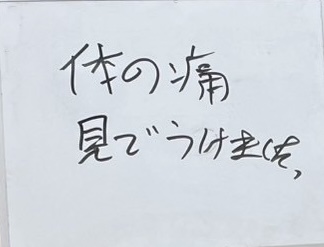 体の痛
見でうけました、